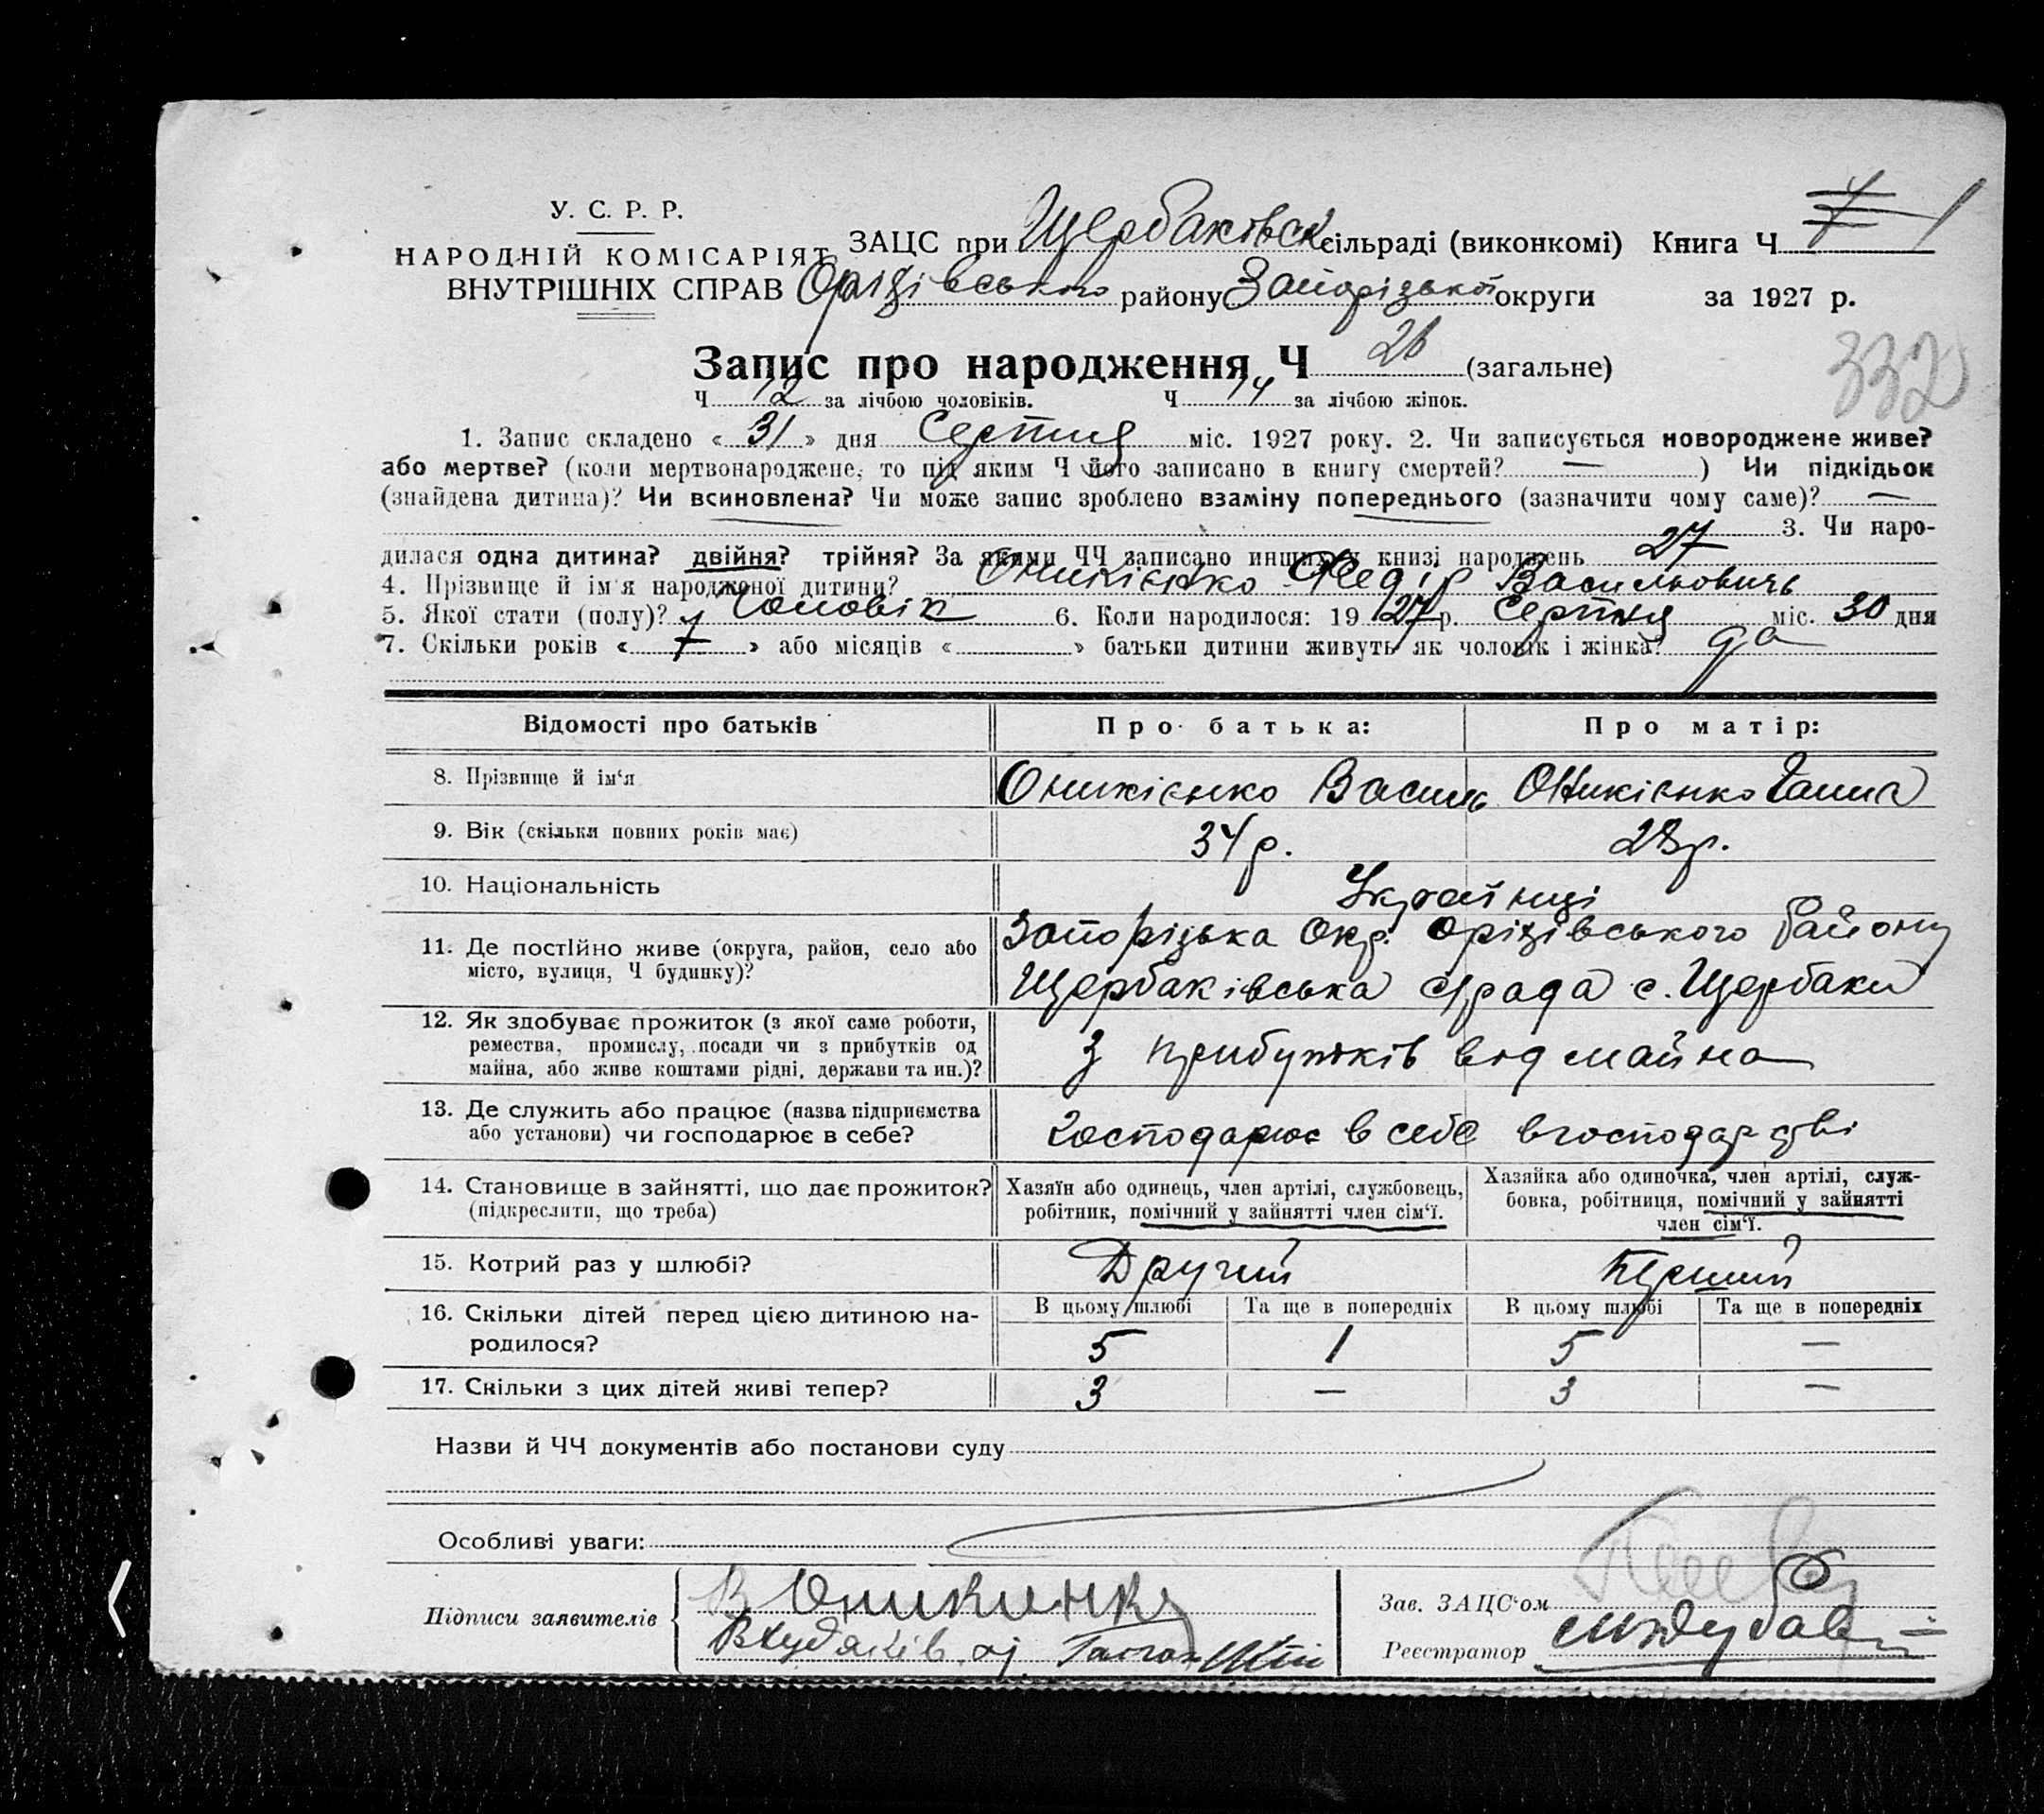 У. С. Р. Р.
НАРОДНІЙ КОМІСАРІЯТ
ВНУТРІШНІХ СПРАВ
ЗАЦС при Щербаківск сільраді (виконкомі) Книга Ч 1
Оріхівського району Запорізької округи за 1927 р.
332
Запис про народження Ч 26 (загальне)
Ч 12 за лічбою чоловіків. Ч 14 за лічбою жінок.
1. Запис складено « 31 » дня Серпня міс. 1927 року. 2. Чи записується новороджене живе?
або мертве? (коли мертвонароджене, то під яким Ч його записано в книгу смертей? — ) Чи підкідьок
(знайдена дитина)? Чи всиновлена? Чи може запис зроблено взаміну попереднього (зазначити чому саме)? —
3. Чи наро-
дилася одна дитина? двійня? трійня? За якими ЧЧ записано инших у книзі народжень 27
4. Прізвище й ім'я народженої дитини? Оникієнко Федір Васильовичь
5. Якої стати (полу)? Чоловік 6. Коли народилося: 1927 р. Серпня міс. 30 дня
7. Скільки років « 7 » або місяців « » батьки дитини живуть як чоловік і жінка? да
Відомості про батьків Про батька: Про матір:
8. Прізвище й ім'я Оникієнко Василь Оникієнко Ганна
9. Вік (скільки повних років має) 34 р. 28 р.
10. Національність Українці
11. Де постійно живе (округа, район, село або Запорізька Окр. Оріхівського району
місто, вулиця, Ч будинку)? Щербаківська с/рада с. Щербаки
12. Як здобуває прожиток (з якої саме роботи,
ремества, промислу, посади чи з прибутків од З прибутків від майна
майна, або живе коштами рідні, держави та ин.)?
13. Де служить або працює (назва підприємства
або установи) чи господарює в себе? Господарює в себе в господарстві
14. Становище в зайнятті, що дає прожиток? Хазяїн або одинець, член артілі, службовець, Хазяйка або одиночка, член артілі, служ-
(підкреслити, що треба) робітник, помічний у зайнятті член сім'ї. бовка, робітниця, помічний у зайнятті
член сім'ї.
15. Котрий раз у шлюбі? Другий Перший
16. Скільки дітей перед цією дитиною на- В цьому шлюбі Та ще в попередніх В цьому шлюбі Та ще в попередніх
родилося? 5 1 5 —
17. Скільки з цих дітей живі тепер? 3 — 3 —
Назви й ЧЧ документів або постанови суду
Особливі уваги:
Підписи заявителів
Зав. ЗАЦС'ом
Реєстратор